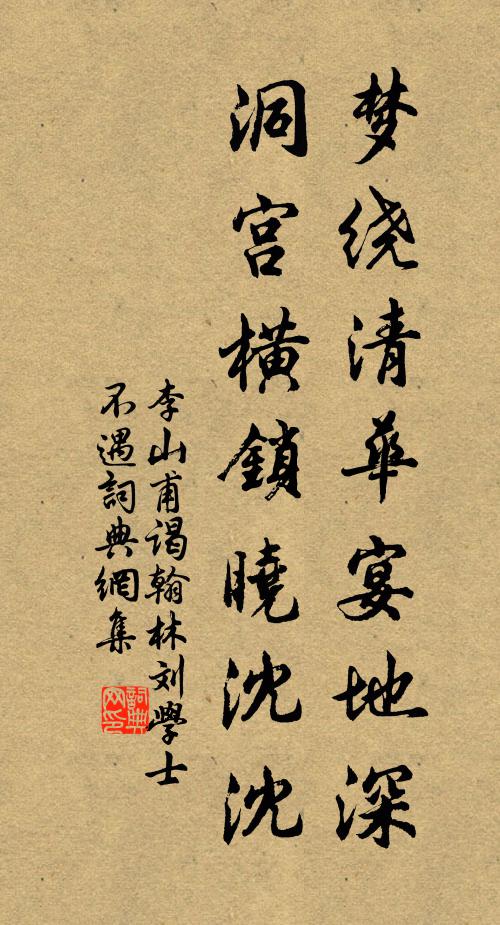 梦绕清华宴地深
洞宫横鎖曉沈沈
李山甫谒翰林刘學士
不遇詞典網集
詞典网印